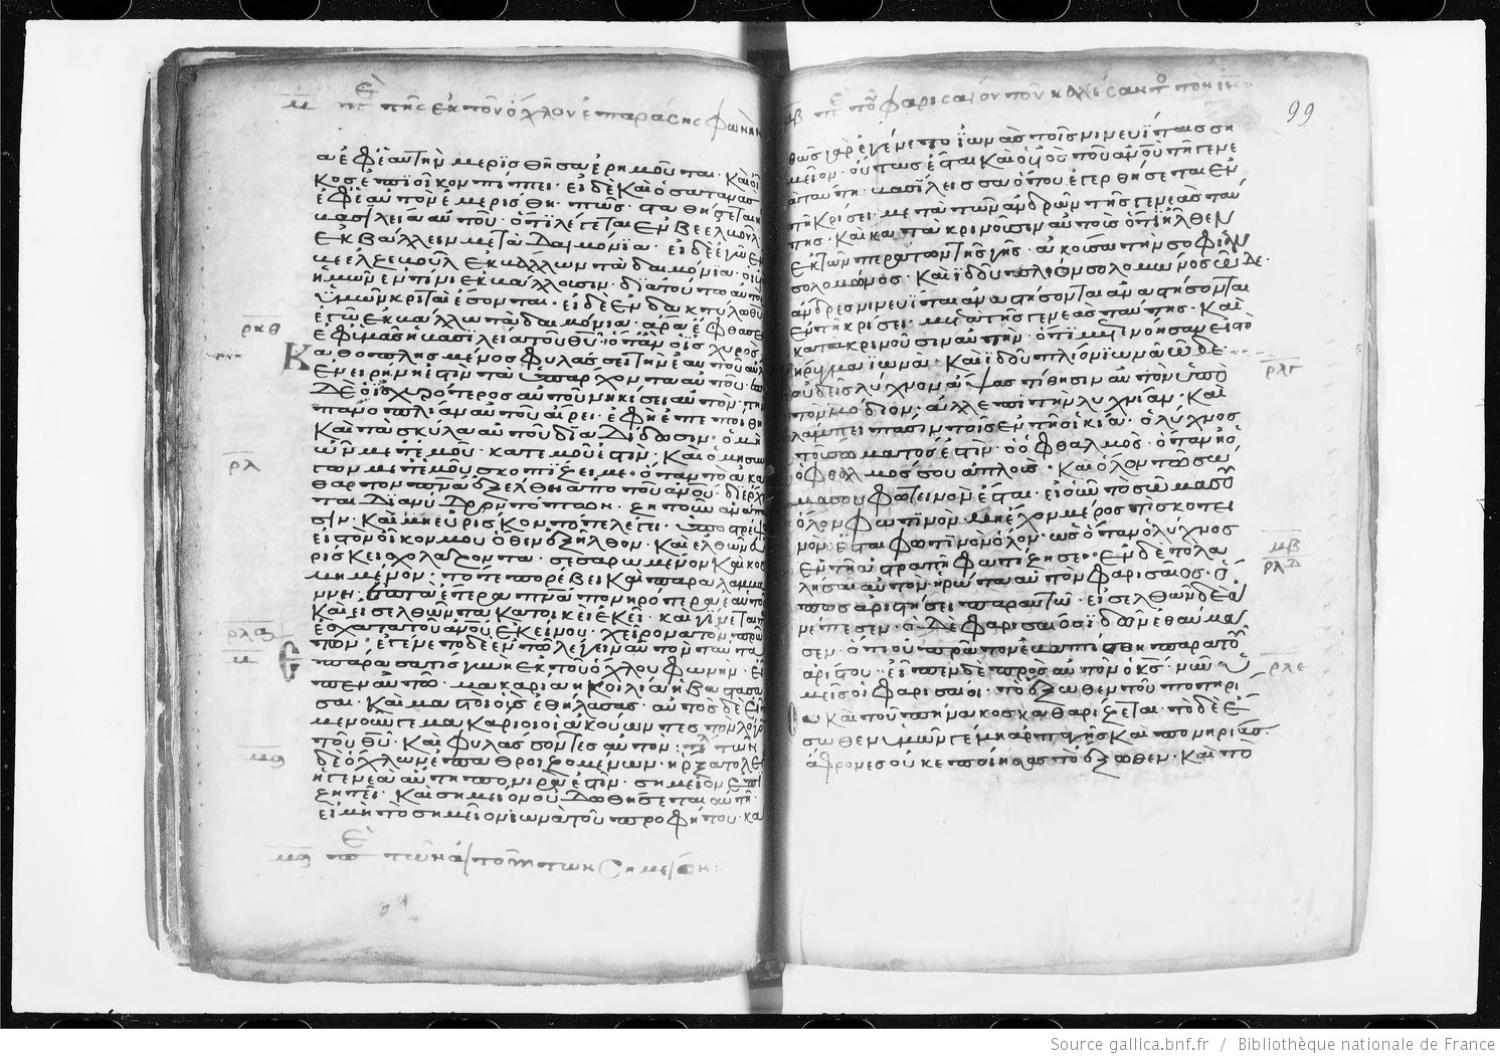 μ πε τῆς ἐκ τοῦ ὄχλου ἐπαράσης φωνὴν
α ἐφ ἑαυτὴν μερισθῆσα ἐρημοῦται· καὶ οἶ
κος ἐπὶ οἶκον πίπτει· εἰ δὲ καὶ ὁ σατανᾶς
ἐφ ἑαυτὸν ἐμερίσθη· πῶς σταθήσεται ἡ
βασιλεία αὐτοῦ· ὅτι λέγεται ἐν βεελζουὴλ
ἐκβάλλειν με τὰ δαιμόνια· εἰ δὲ ἐγὼ ἐν
βεελζεβοὺλ ἐκβάλλω τὰ δαιμόνια· οἱ υἱοὶ
ὑμῶν ἐν τίνι ἐκβάλλουσιν· διατοῦτο αὐτοὶ
ὑμῶν κριταὶ ἔσονται· εἰ δὲ ἐν δακτύλω θυ
ἐγὼ ἐκβάλλω τὰ δαιμόνια· ἄρα ἔφθασεν
ρκθ
ἐφ ὑμᾶς ἡ βασιλεία τοῦ θυ· ὅταν ὁ ἰσχυρὸς
Καθοπλησμένος φυλάσσει τὴν ἑαυτοῦ αὐλ
ἐν εἰρήνη ἐστὶν τὰ ὑπάρχοντα αὐτοῦ·
δὲ ὁ ἰσχυρότερος αὐτοῦ νικήσει αὐτόν· τὴν
πανοπλίαν αὐτοῦ αἴρει· ἐφ ἧ ἐπεποίθη
καὶ τὰ σκύλα αὐτοῦ διαδίδωσιν· ὁ μὴ
ρλ
ὢν μετ ἐμοῦ· κατ ἐμοῦ ἐστίν· καὶ ὁ μὴ συν
άγων μετ ἐμοῦ σκορπίζει με· ὅταν τὸ ἀκα
θαρτον πνα ἐξέλθη ἀπὸ τοῦ ανου· διέρχε
ται δι ἀνύδρων τόπων· ζητοῦν ἀνάπαυ
σιν· καὶ μὴ εὑρίσκον τότε λέγει· ὑποστρέψω
εἰς τὸν οἶκον μου ὅθεν ἐξῆλθον· καὶ ἐλθὼν εὑ
ρίσκει σχολάζοντα· σεσαρωμένον καὶ κοσ
μημένον· τότε πορεύεται καὶ παραλαμβά
νει· ἕτερα πνα πονηρότερα ἑαυτοῦ
καὶ εἰσελθῶντα κατοικεῖ ἐκεῖ· καὶ γίνεται
τὰ ἔσχατα τοῦ ανου ἐκείνου· χείρονα τῶν πρώ
ρλα
μ
των· ἐγένετο δὲ ἐν τῶ λέγειν αὐτὸν ταῦτα
ἐπάρασά τις γυνὴ ἐκ τοῦ ὄχλου φωνήν· εἶ
πεν αὐτῶ· μακαρία ἡ κοιλία ἡ βαστάσα
σα· καὶ μαστοὶ οἷς ἐθήλασας· αὐτὸς δὲ εἶπεν
μενοῦν γε μακάριοι οἱ ἀκούωντες τὸν λόγον
τοῦ θυ· καὶ φυλάσσοντες αὐτόν· τῶν
μα
δὲ ὄχλων ἐπαθροιζομένων· ἤρξατο λέγ
ἡ γενεὰ αὕτη πονηρά ἐστιν· σημεῖον ἐπι
ζητεῖ· καὶ σημεῖον οὐ δοθήσεται αὐτῆ·
εἰ μὴ τὸ σημεῖον ἰωνᾶ τοῦ προφήτου· κα
μα πε τῶν αἰτούντων σημεῖον:
μβ πε τοῦ φαρισαίου τοῦ καλέσαντος τὸν ιν:
99
θῶς γὰρ ἐγένετο ἰωνᾶς τοῖς νινευΐταις ση
μεῖον· οὕτως ἔσται καὶ ὁ υἱὸς τοῦ ανου τῆ γενε
ᾶ ταύτη· βασίλεισσα νότου ἐγερθήσεται ἐν
τῆ κρίσει· μετὰ τῶν ἀνδρῶν τῆς γενεᾶς ταύ
της· καὶ κατακρινοῦσιν αὐτούς ὅτι ἦλθεν
ἐκ τῶν περάτων τῆς γῆς· ἀκοῦσαι τὴν σοφίαν
σολομῶνος· καὶ ἰδοὺ πλιον σολομῶνος ὧδε·
ἄνδρες νινευῖται ἀναστήσονται
ἐν τῆ κρίσει· μετὰ τῆς γενεᾶς ταύτης· καὶ
κατακρινοῦσιν αὐτήν· ὅτι μετενόησαν εἰς τὸ
κήρυγμα ἰωνᾶ· καὶ ἰδοὺ πλιον ἰωνᾶ ὧδε·
ρλγ
οὐδεὶς λύχνον ἅψας τίθησιν αὐτὸν ὑπὸ
τὸν μόδιον· ἀλλ ἐπὶ τὴν λυχνίαν· καὶ
λάμπει πᾶσιν τοῖς ἐν τῆ οἰκία· ὁ λύχνος
τοῦ σώματός ἐστιν· ὁ ὀφθαλμός· ὅταν ἦ ὁ
ὀφθαλμός σου ἁπλοῦς· καὶ ὅλον τὸ σῶ
μα σου φωτεινὸν ἔσται· εἰ οὖν τὸ σῶμα σου
ὅλον φωτινὸν μὴ ἔχον μέρος τι σκοτει
νόν· ἔσται φωτινὸν ὅλον· ὡς ὅταν ὁ λύχνος
μβ
ρλδ
ἐν τῆ ἀστραπῆ φωτίζη σε· ἐν δὲ τῶ λα
λῆσαι αὐτόν· ἠρώτα αὐτὸν φαρισαῖος·
πως ἀριστήσει παρ αὐτῶ· εἰσελθὼν δὲ ἀ
νέπεσεν· ὁ δὲ φαρισαῖος ἰδὼν ἐθαύμα
σεν· ὅτι οὐ πρῶτον ἐβαπτίσθη πρὸ τοῦ
ρλε
ἀρίστου· εἶπεν δὲ πρὸς αὐτὸν ὁ κς· νῦν ὑ
μεῖς οἱ φαρισαῖοι· τὸ ἔξωθεν τοῦ ποτηρί
ου καὶ τοῦ πίνακος καθαρίζεται· τὸ δὲ ἔ
σωθεν ὑμῶν γέμη ἁρπαγῆς καὶ πονηρίας·
ἄφρονες οὐκ ἐποίησας τὸ ἔξωθεν· καὶ τὸ
Source gallica.bnf.fr / Bibliothèque nationale de France